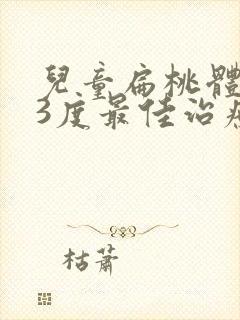 兒童扁桃體
3度最佳治
枯蕭